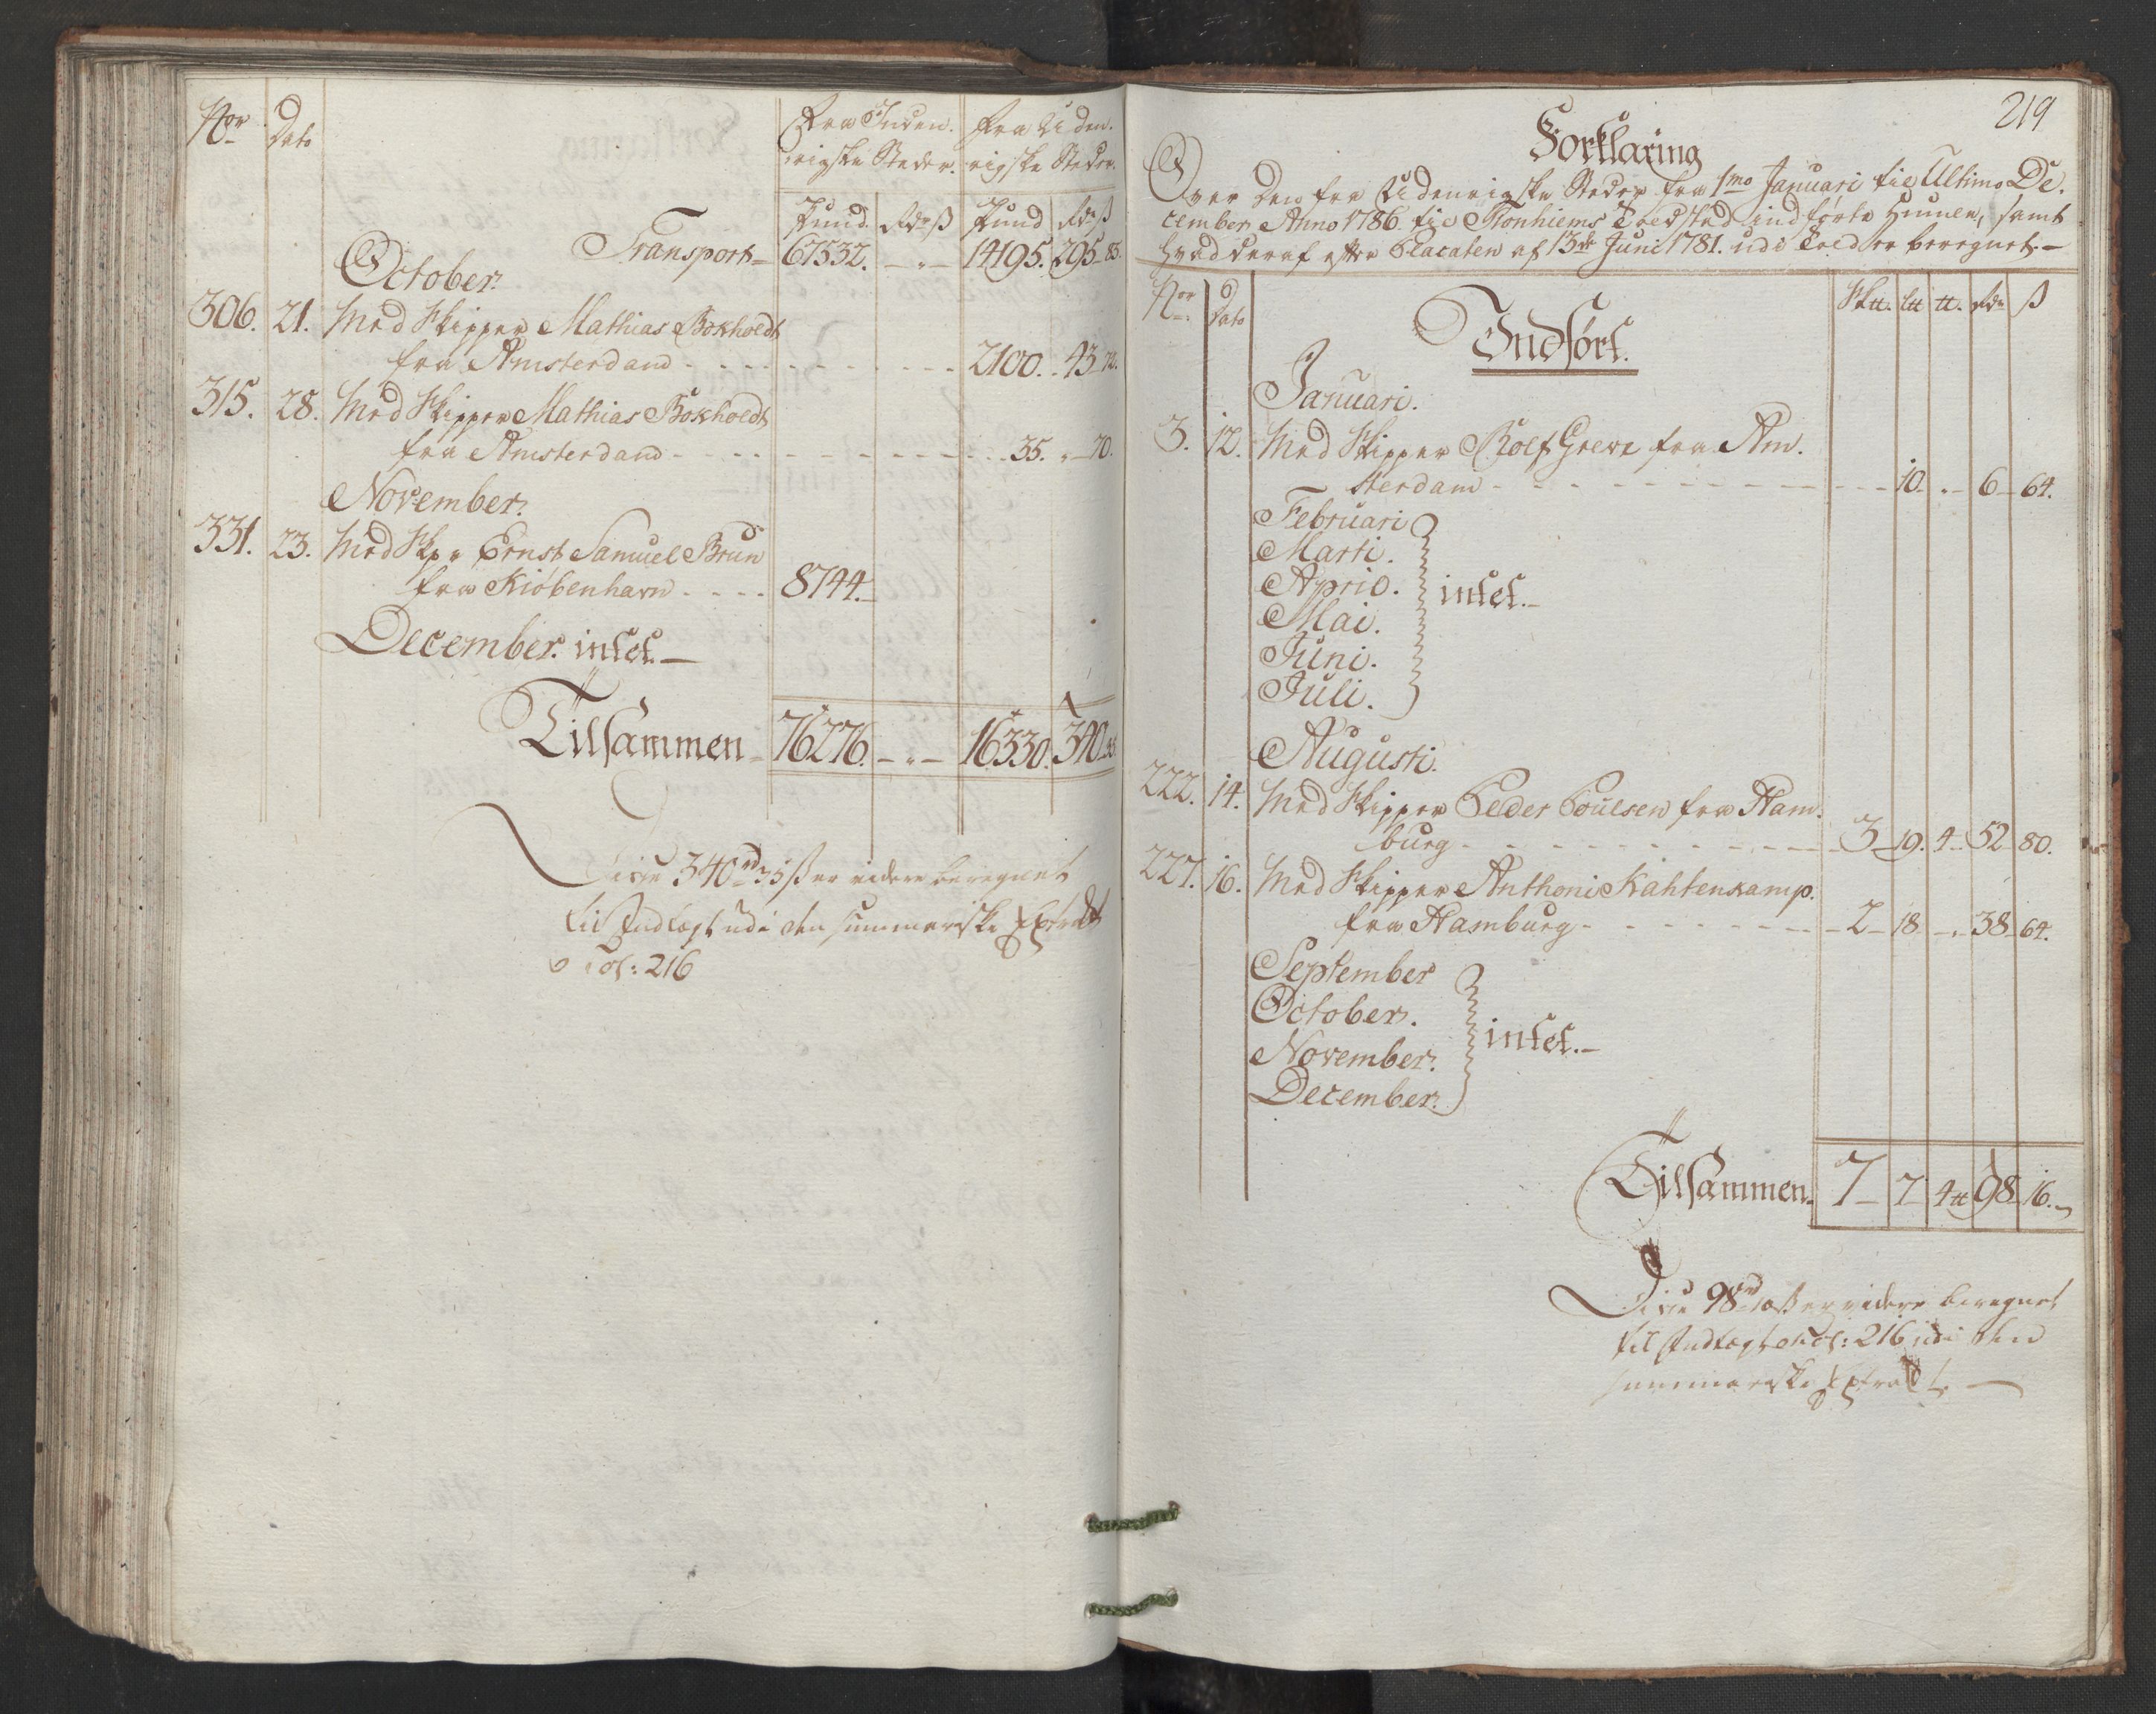 Nor Dato Fra Inden- Fra Uden-
rigske Steder. rigske Steder.
Pund. Rdr ß Pund Rdr ß
Transport 67532. 14195. 295 83.
October.
306. 21. Med Skipper Mathias Bokholdt
fra Amsterdam 2100. 43
315. 28. Med Skipper Mathias Bokholdt
fra Amsterdam 35. " 70.
November.
331. 23. Med Skpr Ernst Samuel Brun
fra Kiøbenhavn 8744.
December. intet.
Tilsammen 76276. 16330. 340
Disse 340 rd 35 ß er videre beregnet
til Indtægt udi den summariske Extract
Fol: 216
219
Forklaring
Over den fra Udenrigske Steder fra 1mo Januari til Ultimo De-
cember Anno 1786 til Tronhiems Toldsted indførte Humle, samt
hvad deraf efter Placaten af 13de Juni 1781. udi Told er beregnet.
Nor Dato Indført. Sktt. Ltt tt. Rdr ß
Januari.
3. 12. Med Skipper Rolf Greve fra Am-
sterdam 10. " 6 64.
Februari
Marti.
April.
Mai.
Juni.
Juli.
intet.
Augusti.
222. 14. Med Skipper Peder Poulsen fra Ham-
burg 3 19. 4 52 80.
227. 16. Med Skipper Anthoni Kahtenkamp.
fra Hamburg 2 18 " 38 64.
September
October.
November.
December.
intet.
Tilsammen. 7 7 4 tt 98 16.
Disse 98 rd 16 ß er videre beregnet
til Indtægt Fol: 216 udi den
summariske Extract.